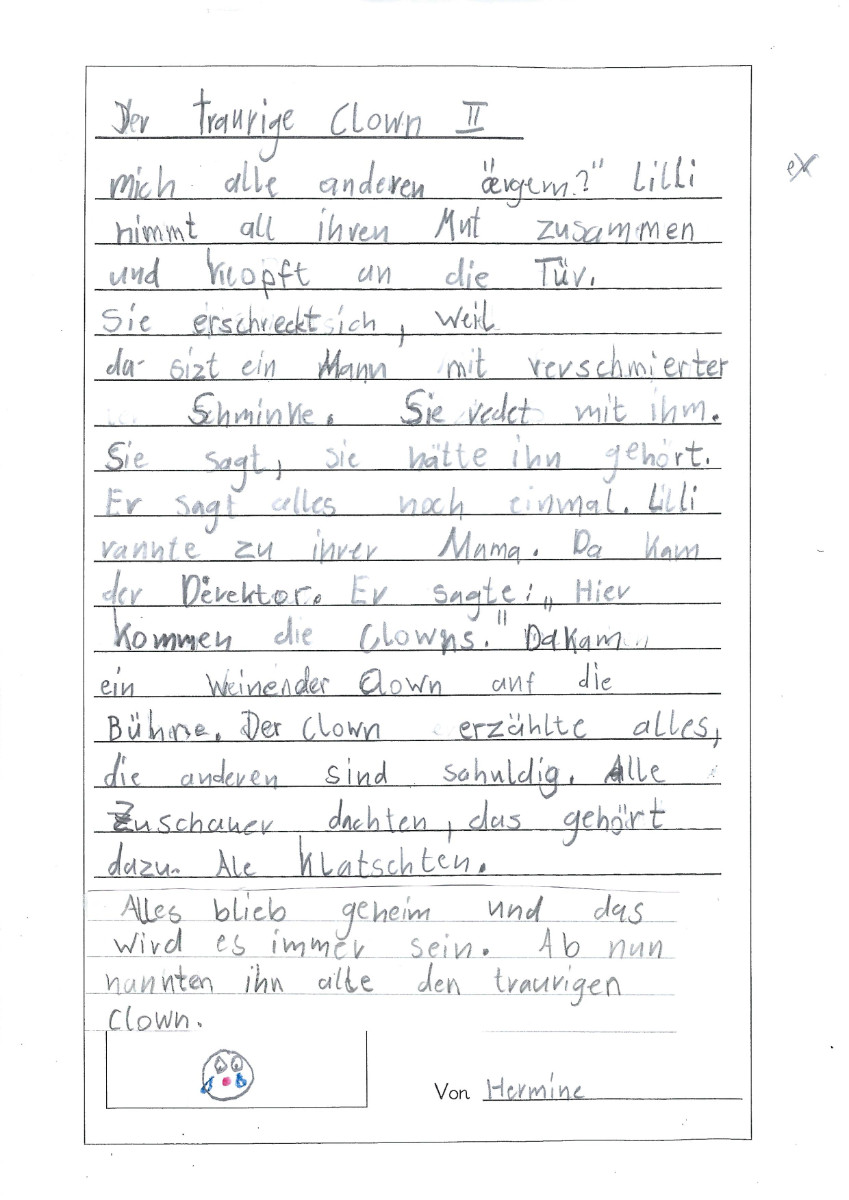 Der traurige Clown II
mich alle anderen ärgern?" Lilli
nimmt all ihren Mut zusammen
und klopft an die Tür.
Sie erschreckt sich, weil
da sizt ein Mann mit verschmierter
Schminke. Sie redet mit ihm.
Sie sagt, sie hätte ihn gehört.
Er sagt alles noch einmal. Lilli
rannte zu ihrer Mama. Da kam
der Direktor. Er sagte: „Hier
kommen die Clowns." Da kam
ein weinender Clown auf die
Bühne. Der Clown erzählte alles,
die anderen sind schuldig. Alle
Zuschauer dachten, das gehört
dazu. Ale klatschten.
Alles blieb geheim und das
wird es immer sein. Ab nun
nannten ihn alle den traurigen
Clown.
Von Hermine